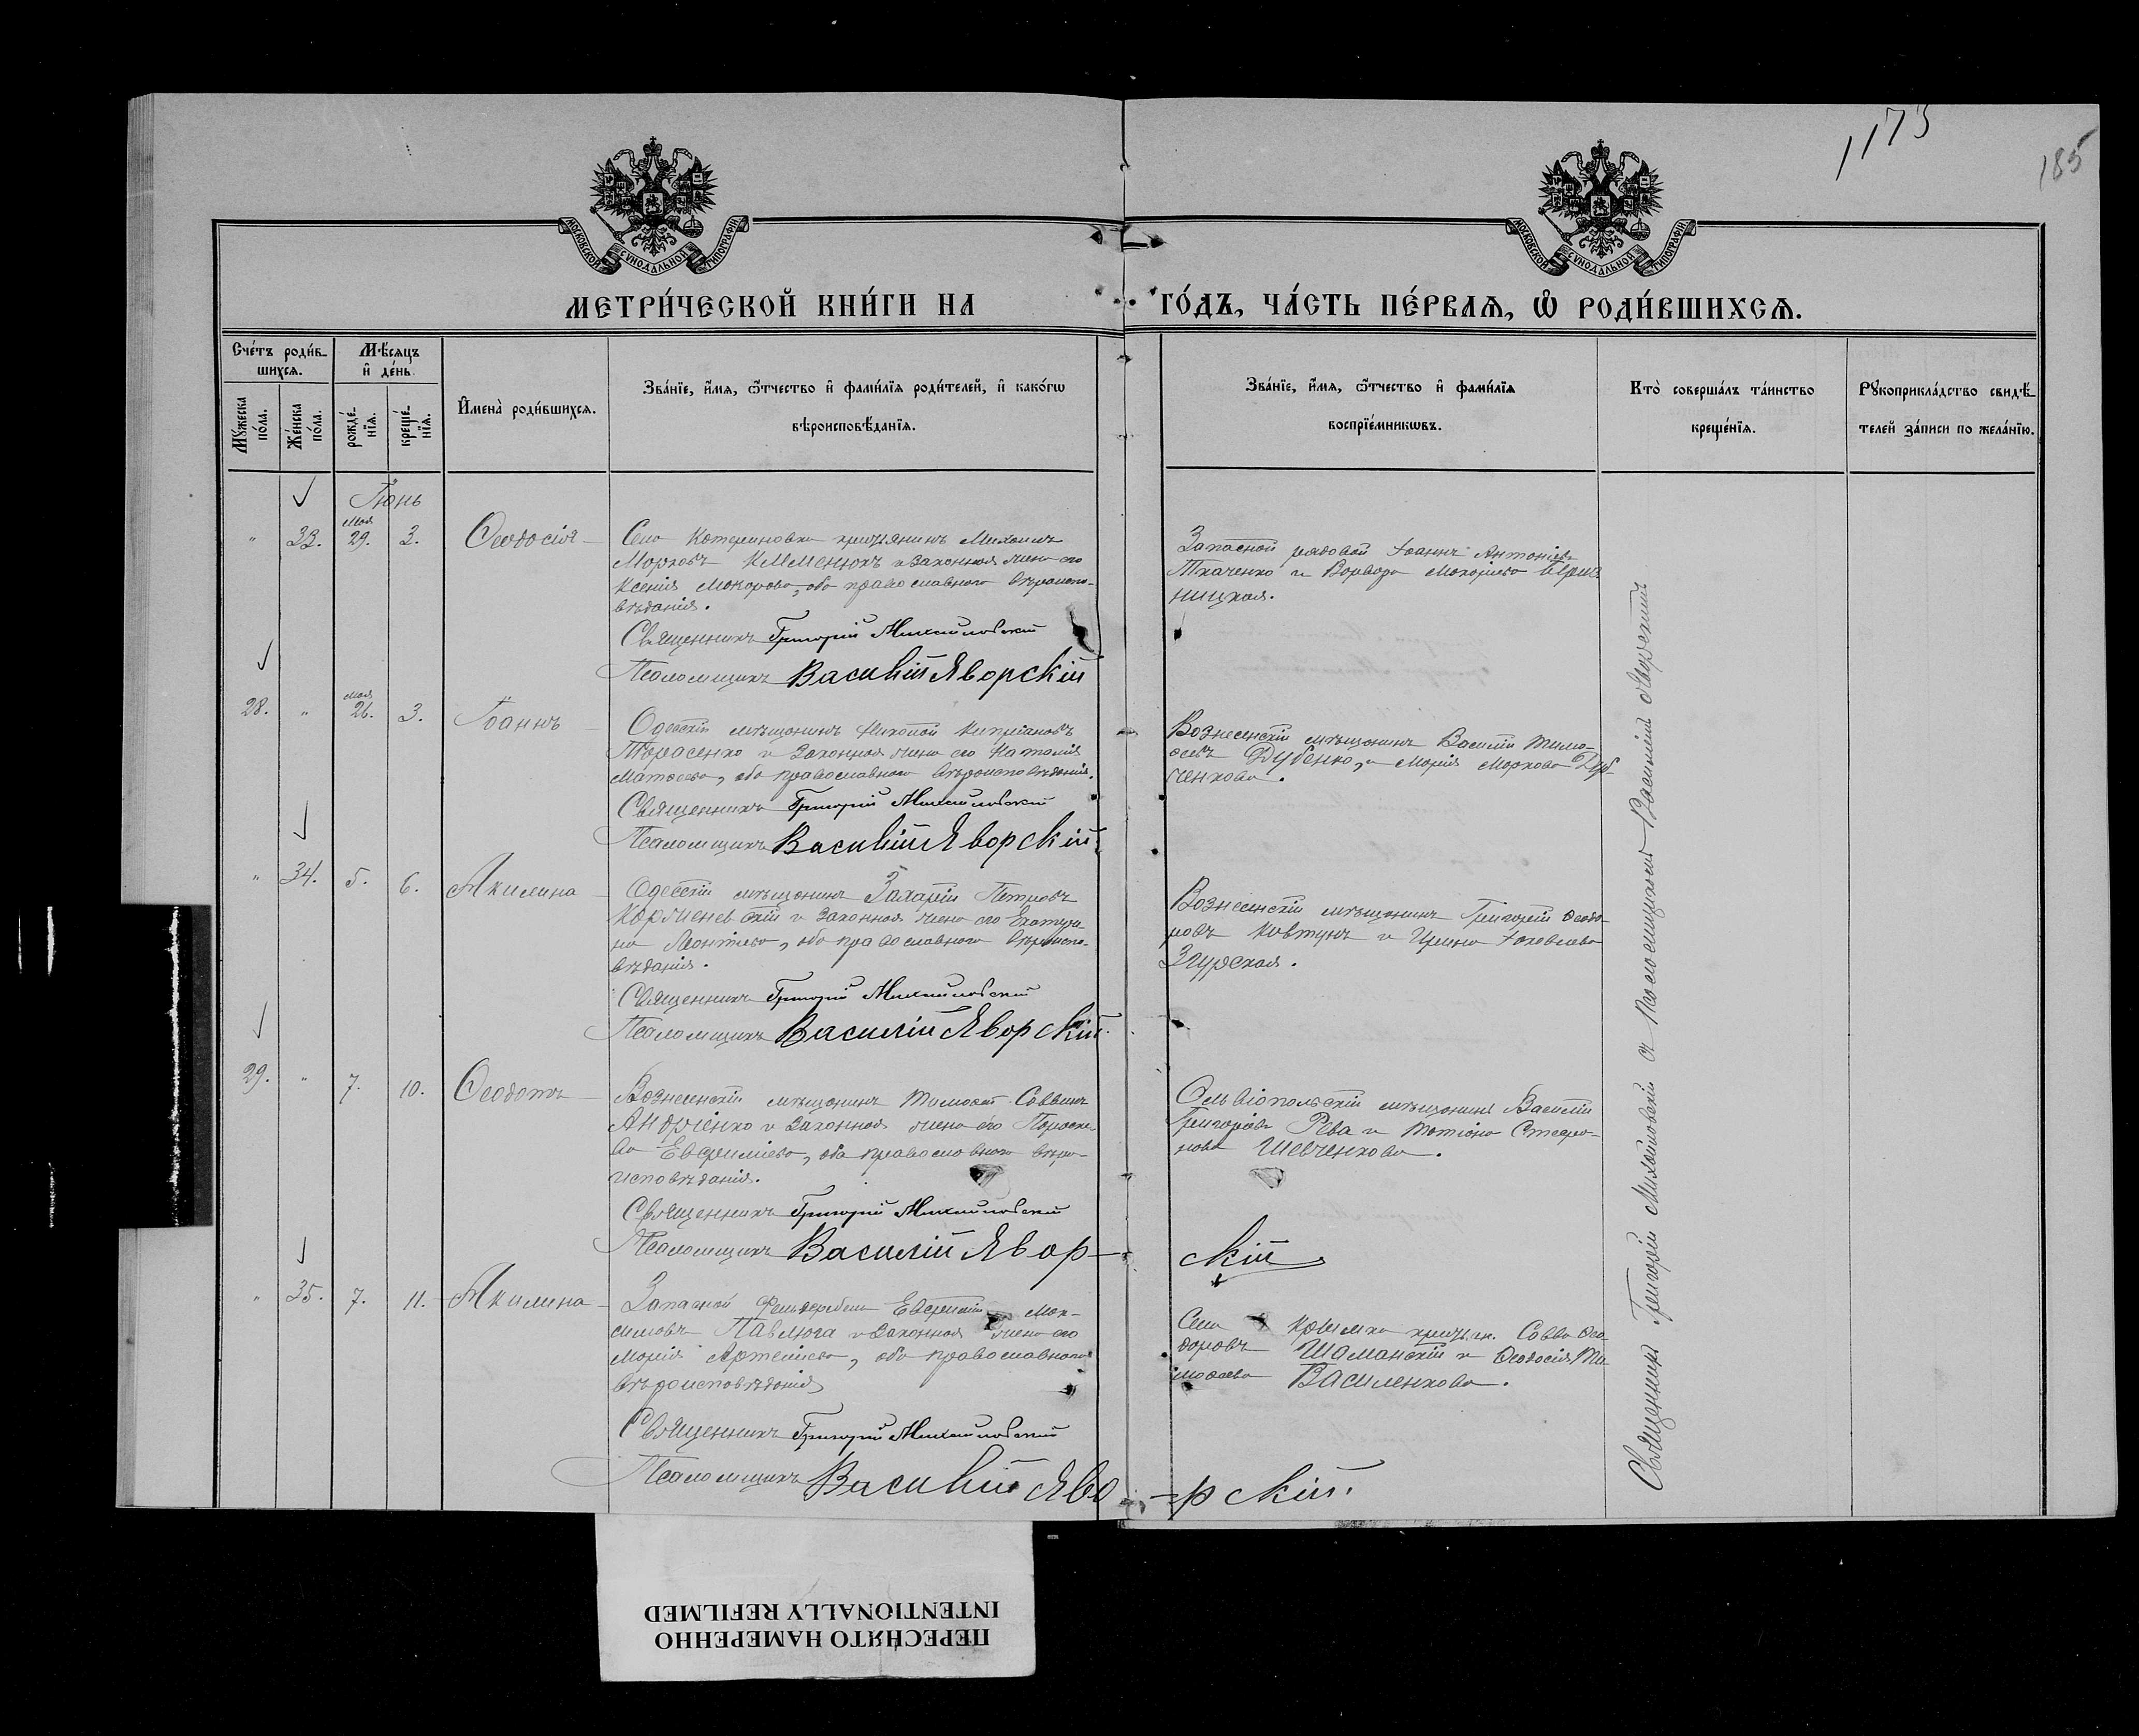 1173
185
МОСКОВСКОЙ СУНОДАЛЬНОЙ ТИПОГРАФІИ
МОСКОВСКОЙ СУНОДАЛЬНОЙ ТИПОГРАФІИ
МЕТРИ́ЧЕСКОЙ КНИ́ГИ НА
ГО́ДЪ, ЧА́СТЬ ПЕ́РВАѦ, Ѡ РОДИ́ВШИХСѦ.
Сче́тъ роди́в-
шихсѧ.
Мѣ́сѧцъ
и҆ де́нь.
Мꙋ́жеска
по́ла.
Же́нска
по́ла.
рожде́-
нїѧ.
креще́-
нїѧ.
И҆мена̀ роди́вшихсѧ.
Зва́нїе, и҆́мѧ, ѻ҆́тчество и҆ фами́лїѧ роди́телей, и҆ како́гѡ
вѣроисповѣ́данїѧ.
Зва́нїе, и҆́мѧ, ѻ҆́тчество и҆ фами́лїѧ
воспрїе́мникѡвъ.
Кто̀ соверша́лъ та́инство
креще́нїѧ.
Рꙋкоприкла́дство свидѣ́-
телей за́писи по жела́нїю.
Іюнь
" 33. Мая 29. 3. Ѳеодосія
Села Катериновки крестьянинъ Михаилъ
Марковъ Клименюкъ и законная жена его
Ксенія Макарова, оба православнаго вѣроиспо-
вѣданія.
Священникъ Григорій Михайловскій
Псаломщикъ Василій Яворскій
Запасной рядовой Іоаннъ Антоніевъ
Ткаченко и Варвара Макаріева
ницкая.
28. " Мая 26. 3. Іоаннъ
Одесскій мѣщанинъ Николай Кипріановъ
Тарасенко и законная жена его Наталія
Матѳеева, оба православнаго вѣроисповѣданія.
Священникъ Григорій Михайловскій
Псаломщикъ Василій Яворскій
Вознесенскій мѣщанинъ Василій Тимо-
ѳеевъ Дубенко, и Марія Маркова
ченкова.
" 34. 5. 6. Акилина
Одесскій мѣщанинъ Захарій Петровъ
Корженевскій и законная жена его Екатери-
на Леонтіева, оба православнаго вѣроиспо-
вѣданія.
Священникъ Григорій Михайловскій
Псаломщикъ Василій Яворскій
Вознесенскій мѣщанинъ Григорій Ѳеодо-
ровъ Ковтунъ и Ирина Іаковлева
Згурская.
29. " 7. 10. Ѳеодотъ
Вознесенскій мѣщанинъ Тимоѳей Саввинъ
Андріенко и законная жена его Параске-
ва Евфиміева, оба православнаго вѣро-
исповѣданія.
Священникъ Григорій Михайловскій
Псаломщикъ Василій Явор-
скій
Ольвіопольскій мѣщанинъ Василій
Григоріевъ Рева и Татіана Стефа-
нова Шевченкова.
" 35. 7. 11. Акилина
Запасной Фельдфебель Евфимій Мак-
симовъ Павлюга и законная жена его
Марія Артеміева, оба православнаго
вѣроисповѣданія
Священникъ Григорій Михайловскій
Псаломщикъ Василій Яво
-рскій.
Села Крымки крестьян. Савва Ѳео-
доровъ Шаманскій и Ѳеодосія Ти-
моѳеева Василенкова.
Священникъ Григорій Михайловскій съ псаломщикомъ Василіемъ Яворскимъ
ПЕРЕСНЯТО НАМЕРЕННО
INTENTIONALLY REFILMED